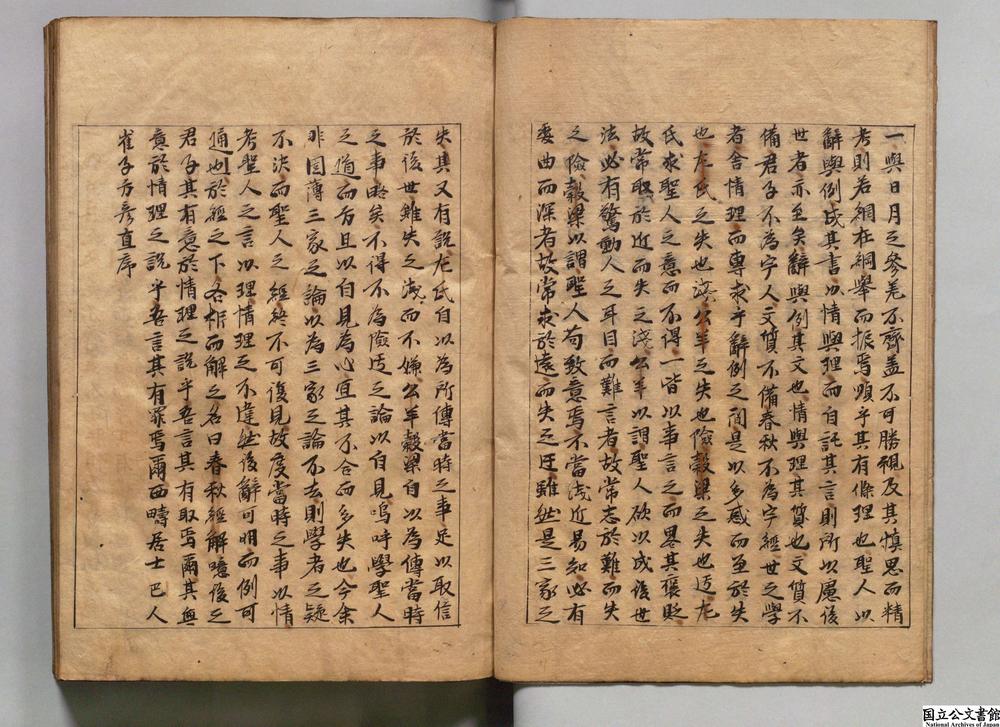 一與日月之參差不齊蓋不可勝視及其慎思而精
考則若網在綱舉而振焉順乎其有條理也聖人以
辭與例成其書以情與理而自託其言則所以慮後
世者亦至矣辭與例其文也情與理其質也文質不
備君子不為字人文質不備春秋不為字經世之學
者舍情理而專求乎辭例之間是以多惑而至於失
也左氏之失也淺公羊之失也險穀梁之失也迂左
氏求聖人之意而不得一皆以事言之而畧其褒貶
故常取於近而失之淺公羊以謂聖人欲以成後世
法必有驚動人之耳目而難言者故常志於難而失
之險穀梁以謂聖人苟致意焉不當淺近易知必有
委曲而深者故常求於遠而失之迂雖然是三家之
失其又有說左氏自以為所傳當時之事足以取信
於後世雖失之淺而不嫌公羊穀梁自以為傳當時
之事略矣不得不為險迂之論以自見嗚呼學聖人
之道而右且以自見為心宜其不合而多失也今余
非固薄三家之論以為三家之論不去則學者之疑
不決而聖人之經終不可復見故度當時之事以情
考聖人之言以理情理之不違然後辭可明而例可
通也於經之下各析而解之名曰春秋經解噫後之
君子其有意於情理之說乎吾言其有取焉爾其無
意於情理之說乎吾言其有罪焉爾西疇居士巴人
崔子方彥直序
国立公文書館
National Archives of Japan